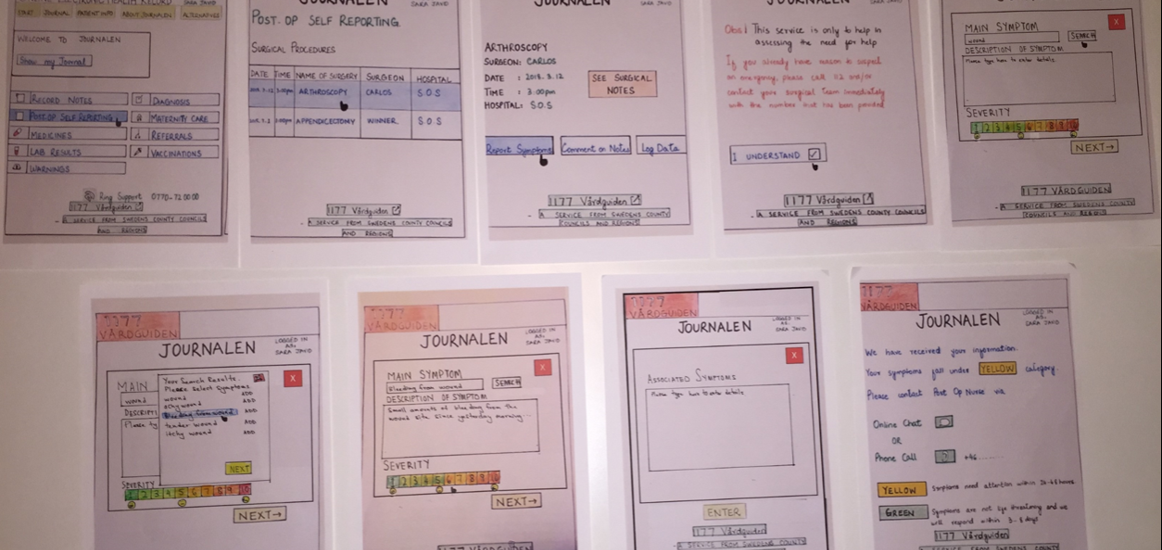 ELECTRONIC HEALTH RECORD
SARA JAVID
START
JOURNAL
PATIENT INFO
ABOUT JOURNALEN
ALTERNATIVES
WELCOME TO JOURNALEN
Show my Journal
RECORD NOTES
DIAGNOSIS
POST-OP SELF REPORTING
MATERNITY CARE
MEDICINES
REFERRALS
LAB RESULTS
VACCINATIONS
WARNINGS
Ring Support 0770-72 00 00
1177 Vårdguiden
- A SERVICE FROM SWEDENS COUNTY COUNCILS
AND REGIONS
JOURNALEN
SARA JAVID
POST-OP SELF REPORTING
SURGICAL PROCEDURES
DATE TIME NAME OF SURGERY SURGEON HOSPITAL
3:00pm ARTHROSCOPY CARLOS SOS
APPENDICECTOMY WINNER SOS
1177 Vårdguiden
- A SERVICE FROM SWEDENS COUNTY COUNCILS
AND REGIONS
JOURNALEN
SARA JAVID
ARTHROSCOPY
SURGEON: CARLOS
DATE : 2018.3.12
TIME : 3:00pm
HOSPITAL: S.O.S
SEE SURGICAL
NOTES
Report Symptoms
Comment on Notes
Log Data
1177 Vårdguiden
- A SERVICE FROM SWEDENS COUNTY
COUNCILS AND REGIONS
JOURNALEN
SARA JAVID
Obs! This service is only to help in
assessing the need for help
If you already have reason to suspect
an emergency, please call 112 and/or
contact your surgical team immediately
with the number that has been provided
I UNDERSTAND
1177 Vårdguiden
- A SERVICE FROM SWEDENS COUNTY COUNCILS
AND REGIONS
X
MAIN SYMPTOM
wound
SEARCH
DESCRIPTION OF SYMPTOM
Please type here to enter details
SEVERITY
1 2 3 4 5 6 7 8 9 10
NEXT→
1177 VÅRDGUIDEN
- A SERVICE FROM SWEDENS COUNTY
COUNCILS AND REGIONS
1177
VÅRDGUIDEN
JOURNALEN
LOGGED IN
AS:
SARA JAVID
X
MAIN
wound
DESCRIPTI
Please ty
Your Search Results.
Please Select Symptoms
wound ADD
ADD
Bleeding from wound ADD
tender wound ADD
itchy wound ADD
NEXT
SEVERITY
1 2 3 4 5 6 7 8 9 10
NEXT→
1177
VÅRDGUIDEN
JOURNALEN
LOGGED IN
AS:
SARA JAVID
X
MAIN SYMPTOM
Bleeding from wound
SEARCH
DESCRIPTION OF SYMPTOM
Small amounts of bleeding from the
wound site since yesterday morning...
SEVERITY
1 2 3 4 5 6 7 8 9 10
NEXT→
1177 Vårdguiden
1177
VÅRDGUIDEN
JOURNALEN
LOGGED IN
AS:
SARA JAVID
X
ASSOCIATED SYMPTOMS
Please type here to enter details
ENTER
1177 Vårdguiden
- A SERVICE FROM SWEDENS COUNTY
1177
VÅRDGUIDEN
JOURNALEN
LOGGED IN
AS:
SARA JAVID
We have received your information.
Your symptoms fall under YELLOW category.
Please contact Post Op Nurse via
Online Chat
OR
Phone Call +46........
YELLOW Symptoms need attention within hours
GREEN Symptoms are not life threatening and we
will respond within 3-5 days
1177 Vårdguiden
A SERVICE FROM SWEDENS COUNTY